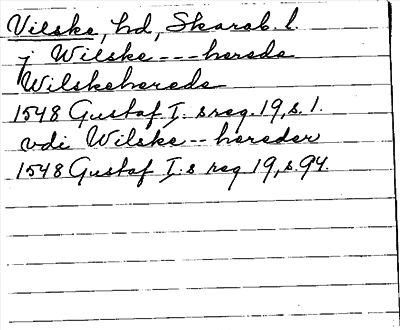 Vilske, hd, Skarab. l.
j Wilske --- herede
Wilskeherede
1548 Gustaf I. s reg. 19, s. 1.
vdi Wilske -- hereder
1548 Gustaf I. s reg 19, s. 94.